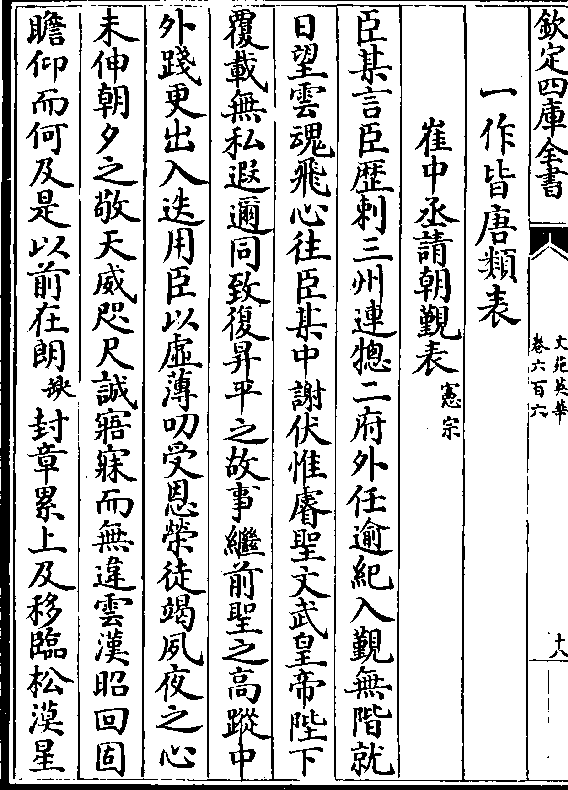 欽定四庫全書
文苑英華
卷六百六
十八
一作皆唐類表
崔中丞請朝覲表 憲宗
臣某言臣歴刺三州連揔二府外任逾紀入覲無階就
日望雲魂飛心往臣某中謝伏惟睿聖文武皇帝陛下
覆載無私遐邇同致復昇平之故事繼前聖之高蹤中
外踐更出入迭用臣以虛薄叨受恩榮徒竭夙夜之心
未伸朝夕之敬天威咫尺誠寤寐而無違雲漢昭回固
瞻仰而何及是以前在朗 缺 封章累上及移臨松漠星